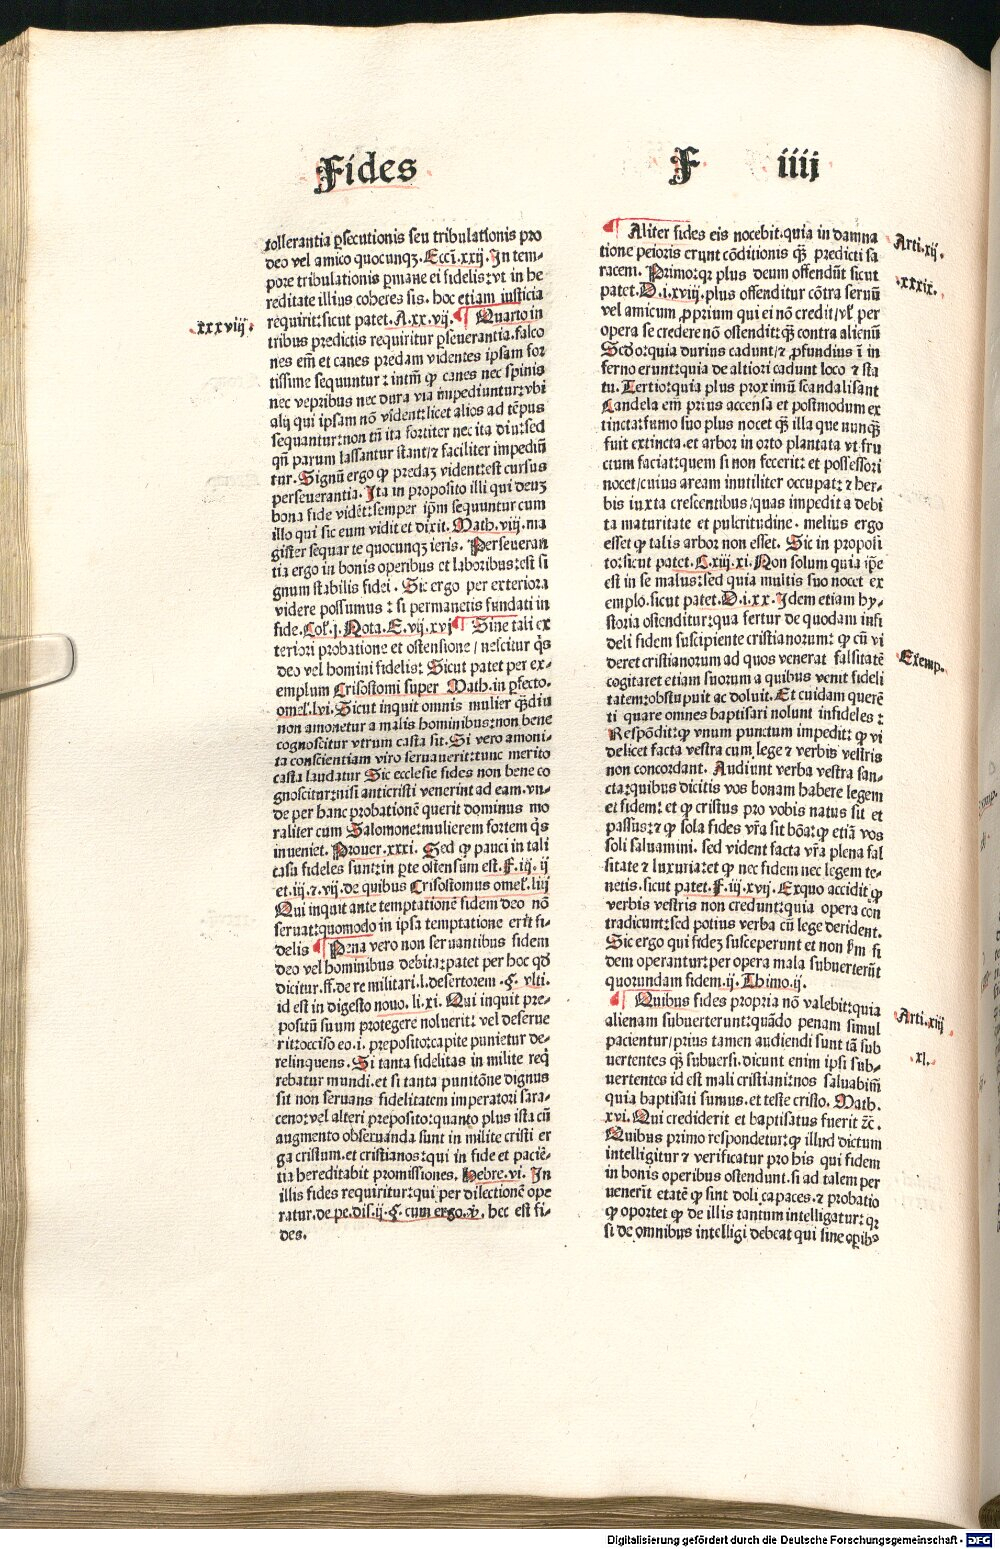 Fides
F iiij
tollerantia ꝑsecutionis seu tribulationis pro
deo vel amico quocunqꝫ. Eccī.xxij. In tem⸗
pore tribulationis ꝑmane ei fidelis: vt in he
reditate illius coheres sis. hoc etiam iusticia
requirit: sicut patet. A.xx.vij. ¶ Quarto in
xxxviij.
tribus predictis requiritur ꝑseuerantia. falco
nes em̄ et canes predam videntes ipsam for
tissime sequuntur: intm̄ ꝙ canes nec spinis
nec vepribus nec dura via impediuntur: vbi
alij qui ipsam nō vident: licet alios ad tēpus
sequantur: non tn̄ ita fortiter nec ita diu: sed
qn̄ parum lassantur stant/ ⁊ faciliter impediū
tur. Signū ergo ꝙ predaꝫ vident: est cursus
perseuerantia. Ita in proposito illi qui deuꝫ
bona fide vidēt: semper ip̄m sequuntur cum
illo qui sic eum vidit et dixit. Math.viij. ma
gister sequar te quocunqꝫ ieris. Perseueran
tia ergo in bonis operibus et laboribus: est si
gnum stabilis fidei. Sic ergo per exteriora
videre possumus: si permanetis fundati in
fide. Col̓.j. Nota. E.vij.xvj ¶ Sine tali ex
teriori probatione et ostensione/ nescitur q̄s
deo vel homini fidelis: Sicut patet per ex⸗
emplum Crisostomi super Math. in ꝑfecto.
omel̓.lvi. Sicut inquit omnis mulier qͣ̄diu
non amonetur a malis hominibus: non bene
cognoscitur vtrum casta sit. Si vero amoni⸗
ta conscientiam viro seruauerit: tunc merito
casta laudatur Sic ecclesie fides non bene co
gnoscitur: nisi anticristi venerint ad eam. vn⸗
de per hanc probationē querit dominus mo
raliter cum Salomone: mulierem fortem q̄s
inueniet. Prouer.xxxi. Sed ꝙ pauci in tali
casu fideles sunt: in ꝑte ostensum est. F.iij. ij
et.iij.⁊.vij. de quibus Crisostomus omel̓.liij
Qui inquit ante temptationē fidem deo nō
seruat: quomodo in ipsa temptatione erit fi⸗
delis ¶ Pena vero non seruantibus fidem
deo vel hominibus debita: patet per hoc qd̓
dicitur. ff. de re militari. l. desertorem. §. vlti.
id est in digesto nouo. li.xi. Qui inquit pre⸗
positū suum protegere noluerit: vel deserue
rit: occiso eo.i. preposito: capite punietur de⸗
relinquens. Si tanta fidelitas in milite req̄
rebatur mundi. et si tanta punitōne dignus
sit non seruans fidelitatem imperatori sara⸗
ceno: vel alteri preposito: quanto plus ista cū
augmento obseruanda sunt in milite cristi er
ga cristum. et cristianos: qui in fide et paciē⸗
tia hereditabit promissiones. Hebre.vi. In
illis fides requiritur: qui per dilectionē ope
ratur. de pe. dis.ij. §. cum ergo. ꝟ. hec est fi⸗
des.
¶ Aliter fides eis nocebit. quia in damna
Arti.xij.
tione peioris erunt cōditionis qͣ̄ predicti sa
raceni. Primo: qꝛ plus deum offendūt sicut
xxxix.
patet. D.i.xviij. plus offenditur cōtra seruū
vel amicum ꝓprium qui ei nō credit/ vl̓ per
opera se credere nō ostendit: qͣ̄ contra alienū
Scd̓o: quia durius cadunt/ ⁊ ꝓfundius ī in
ferno erunt: quia de altiori cadunt loco ⁊ sta
tu. Tertio: quia plus proximū scandalisant
Candela em̄ prius accensa et postmodum ex
tincta: fumo suo plus nocet qͣ̄ illa que nunqͣ̄
fuit extincta. et arbor in orto plantata vt fru
ctum faciat: quem si non fecerit: et possessori
nocet/ cuius aream inutiliter occupat: ⁊ her⸗
bis iuxta crescentibus/ quas impedit a debi
ta maturitate et pulcritudine. melius ergo
esset ꝙ talis arbor non esset. Sic in proposi
to: sicut patet. C.xiij.xi. Non solum quia ip̄e
est in se malus: sed quia multis suo nocet ex
emplo. sicut patet. D.i.xx. Idem etiam hy⸗
storia ostenditur: qua fertur de quodam infi
deli fidem suscipiente cristianorum: ꝙ cū vi
Exemp.
deret cristianorum ad quos venerat falsitatē
cogitaret etiam suorum a quibus venit fideli
tatem: obstupuit ac doluit. Et cuidam querē
ti quare omnes baptisari nolunt infideles:
Respōdit: ꝙ vnum punctum impedit: ꝙ vi
delicet facta vestra cum lege ⁊ verbis vestris
non concordant. Audiunt verba vestra san⸗
cta: quibus dicitis vos bonam habere legem
et fidem: et ꝙ cristus pro vobis natus sit et
passus: ⁊ ꝙ sola fides vr̄a sit bōa: ꝙ etiā vos
soli saluamini. sed vident facta vr̄a plena fal
sitate ⁊ luxuria: et ꝙ nec fidem nec legem te⸗
netis. sicut patet. F.iij.xvj. Exquo accidit ꝙ
verbis vestris non credunt: quia opera con
tradicunt: sed potius verba cū lege derident.
Sic ergo qui fideꝫ susceperunt et non ẜm fi
dem operantur: per opera mala subuerterūt
quorundam fidem.ij. Thimo.ij.
¶ Quibus fides propria nō valebit: quia
Arti.xiij
alienam subuerterunt: quādo penam simul
pacientur/ prius tamen audiendi sunt tā sub
xl.
uertentes qͣ̄ subuersi. dicunt enim ipsi sub⸗
uertentes id est mali cristiani: nos saluabim̄
quia baptisati sumus. et teste cristo. Math.
xvi. Qui crediderit et baptisatus fuerit ⁊c̄.
Quibus primo respondetur: ꝙ illud dictum
intelligitur ⁊ verificatur pro his qui fidem
in bonis operibus ostendunt. si ad talem per
uenerit etatē ꝙ sint doli capaces. ⁊ probatio
ꝙ oportet ꝙ de illis tantum intelligatur: qꝛ
si de omnibus intelligi debeat qui sine oꝑibꝰ
Digitalisierung gefördert durch die Deutsche Forschungsgemeinschaft - DFG